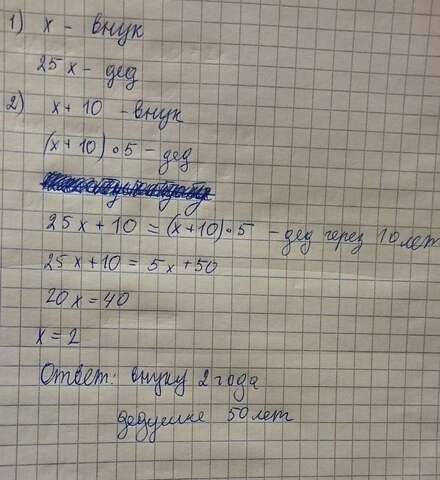 1) x - внук
25x - дед
2) x + 10 - внук
(x+10)•5 - дед
25x + 10 = (x+10)•5 - дед через 10 лет
25x+10 = 5x+50
20x = 40
x = 2
Ответ: внуку 2 года
дедушке 50 лет